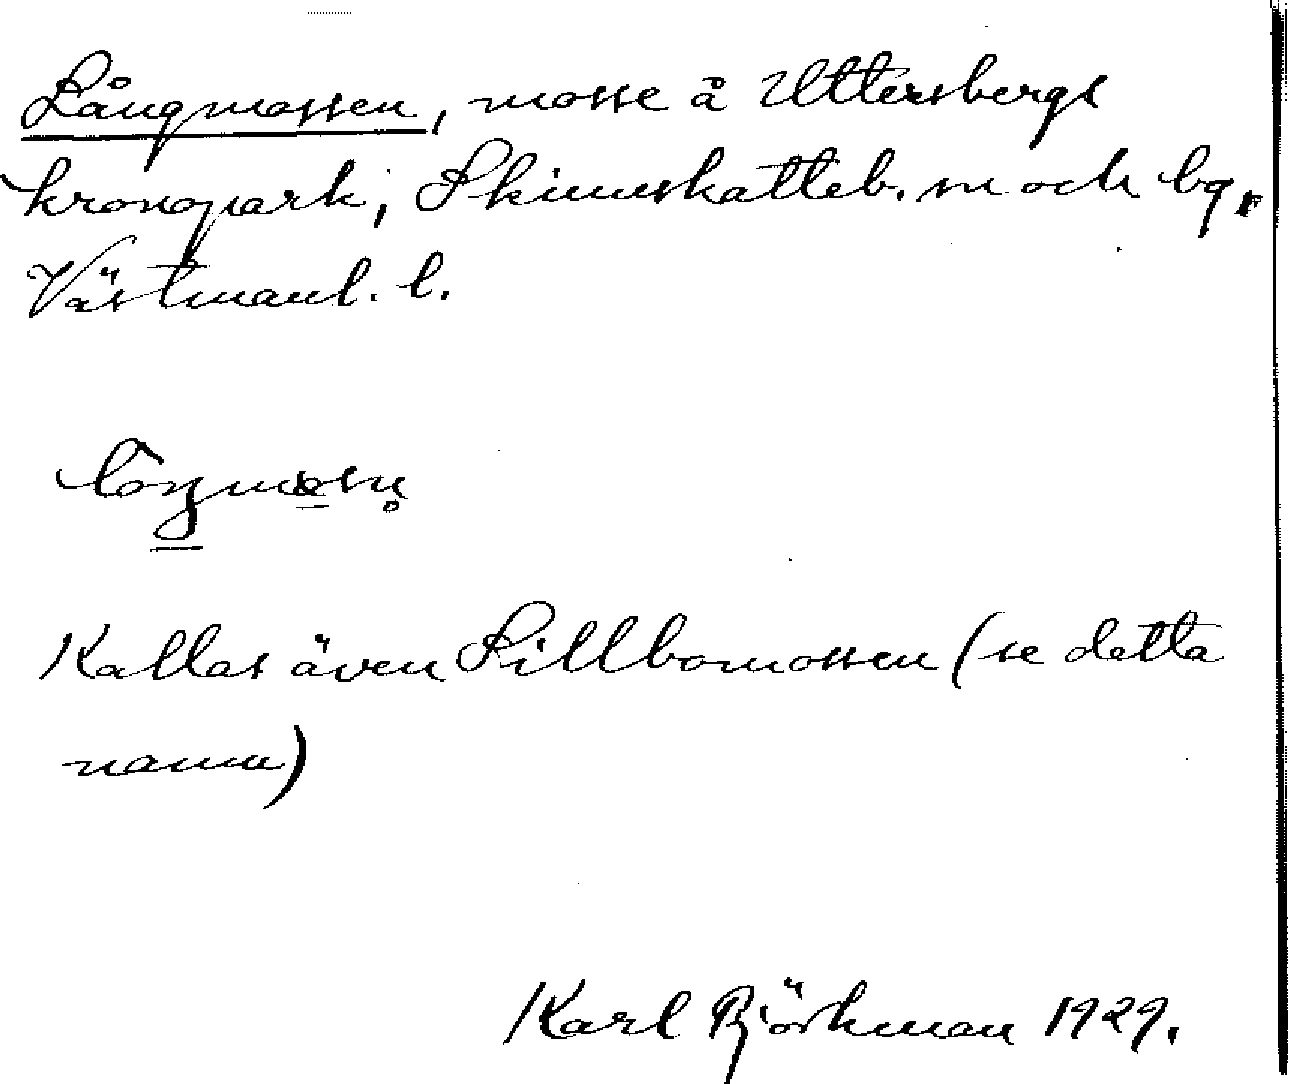 Långmossen, mosse å Uttersbergs
kronopark, Skinnskatteb. sn och bg,
Västmanl. l.
Kallas även Sillbomossen (se detta
namn)
Karl Björkman 1929.